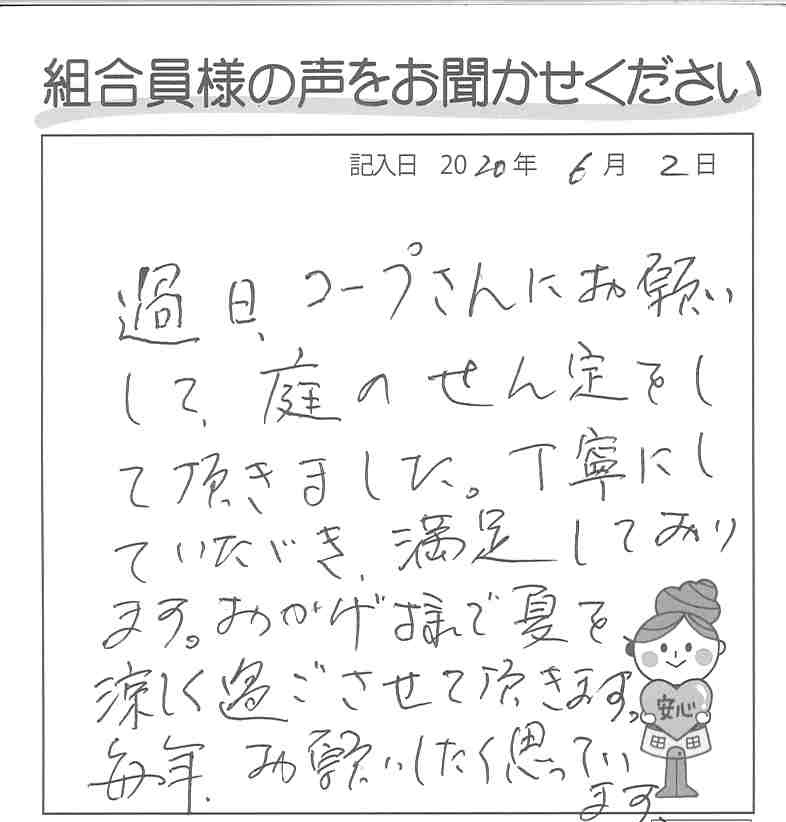 組合員様の声をお聞かせください
記入日 2020年 6月 2日
過日、コープさんにお願い
して、庭のせん定をし
て頂きました。丁寧にし
ていただき、満足しており
ます。おかげ様で夏を
涼しく過ごさせて頂きます。
安心
毎年、お願いしたく思ってい
ます。